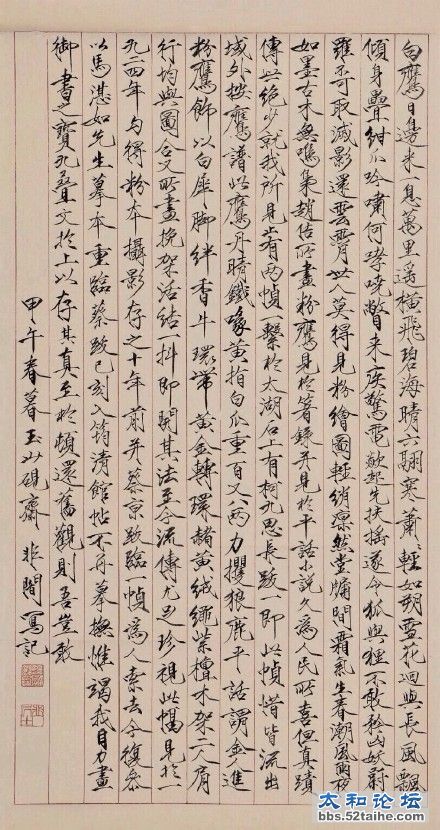 白鷹日邊來一息萬里遥橫飛碧海晴六翮寒蕭蕭輕如朔雪花迴與長風飄
傾身疊紺爪吟嘯何哮哓瞥来疾驚電欻起先扶摇遂令狐與狸不敢矜凶妖蔚
羅不可取滅影還雲霄世人莫得見粉繪圖輕綃凛然堂牖間霜氣生春潮風雨夜
如墨古木無鳴集趙佶所畫粉鷹見於著錄并見於平話小說久為人民所喜但真蹟
傳世絕少就我所見止有兩幀一繫於太湖石上有柯九思長跋一即此幀惜皆流出
域外按鷹譜此鷹丹睛鐵喙黃指白爪重百又兩力攫狼鹿平話謂金人進
粉鷹飾以白犀脚絆香牛環常黃金轉環赭黃絨繩紫檀木架二人肩
行均與圖合又所畫挽架活結一抖即開其法至今流傳尤足珍視此幅見於一
九二四年勾得粉本攝影存之十年前并蔡京跋臨一幀為人索去今復参
以馬湛如先生摹本重臨蔡跋已刻入筠清館帖不再摹撫惟竭我目力畫
御書之寶九疊文於上以存其真至於頓還舊觀則吾豈敢
甲午春暮玉山硯齋 非闇寫記
太和论坛
bbs.52taihe.com